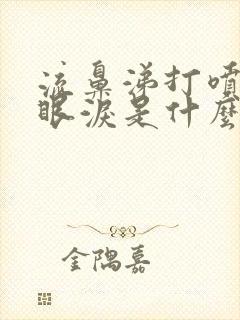 流鼻涕打噴
眼淚是什麼
金隅嘉